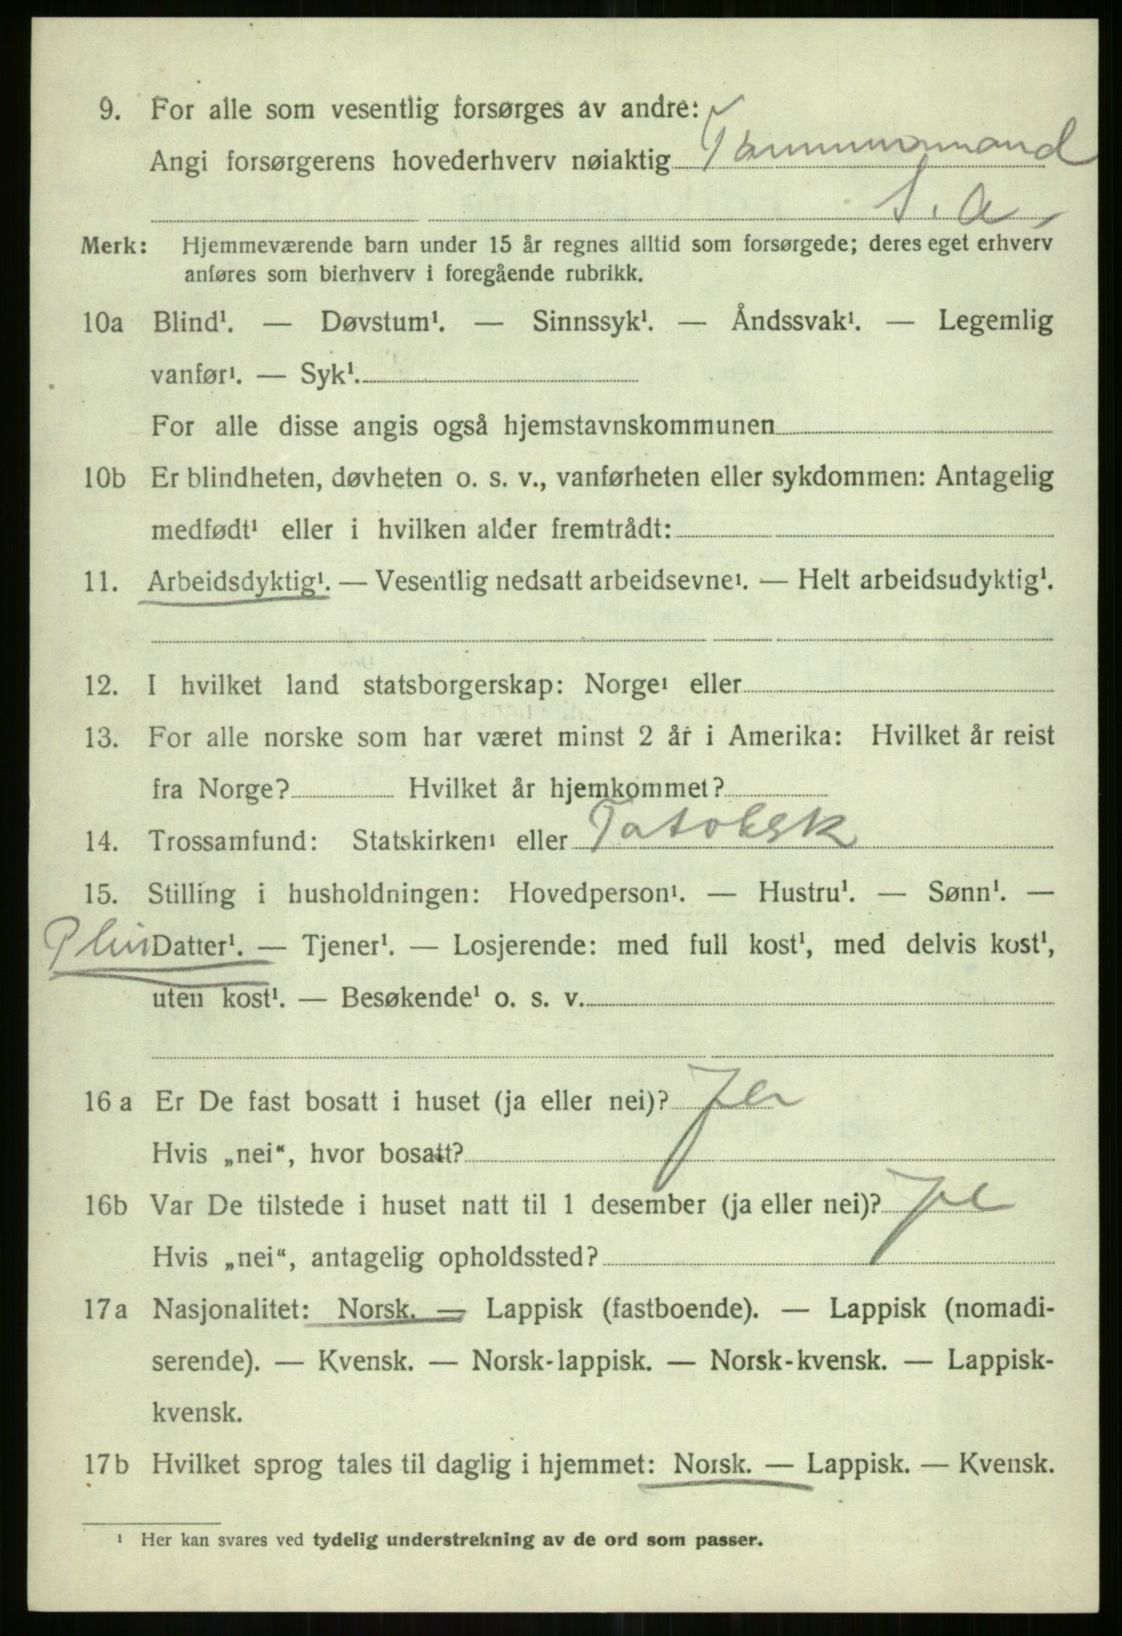 9. For alle som vesentlig forsørges av andre:
Angi forsørgerens hovederhverv nøiaktig
S. a.
Merk: Hjemmeværende barn under 15 år regnes alltid som forsørgede; deres eget erhverv
anføres som bierhverv i foregående rubrikk.
10a Blind¹. — Døvstum¹. — Sinnssyk¹. — Åndssvak¹. — Legemlig
vanfør¹. — Syk¹.
For alle disse angis også hjemstavnskommunen
10b Er blindheten, døvheten o. s. v., vanførheten eller sykdommen: Antagelig
medfødt¹ eller i hvilken alder fremtrådt:
11. Arbeidsdyktig¹. — Vesentlig nedsatt arbeidsevne¹. — Helt arbeidsudyktig¹.
12. I hvilket land statsborgerskap: Norge¹ eller
13. For alle norske som har været minst 2 år i Amerika: Hvilket år reist
fra Norge? Hvilket år hjemkommet?
14. Trossamfund: Statskirken¹ eller
15. Stilling i husholdningen: Hovedperson¹. — Hustru¹. — Sønn¹. —
Datter¹. — Tjener¹. — Losjerende: med full kost¹, med delvis kost¹,
uten kost¹. — Besøkende¹ o. s. v.
16 a Er De fast bosatt i huset (ja eller nei)?
Hvis „nei“, hvor bosatt?
16b Var De tilstede i huset natt til 1 desember (ja eller nei)?
Hvis „nei“, antagelig opholdssted?
17a Nasjonalitet: Norsk. — Lappisk (fastboende). — Lappisk (nomadi-
serende). — Kvensk. — Norsk-lappisk. — Norsk-kvensk. — Lappisk-
kvensk.
17b Hvilket sprog tales til daglig i hjemmet: Norsk. — Lappisk. — Kvensk.
¹ Her kan svares ved tydelig understrekning av de ord som passer.